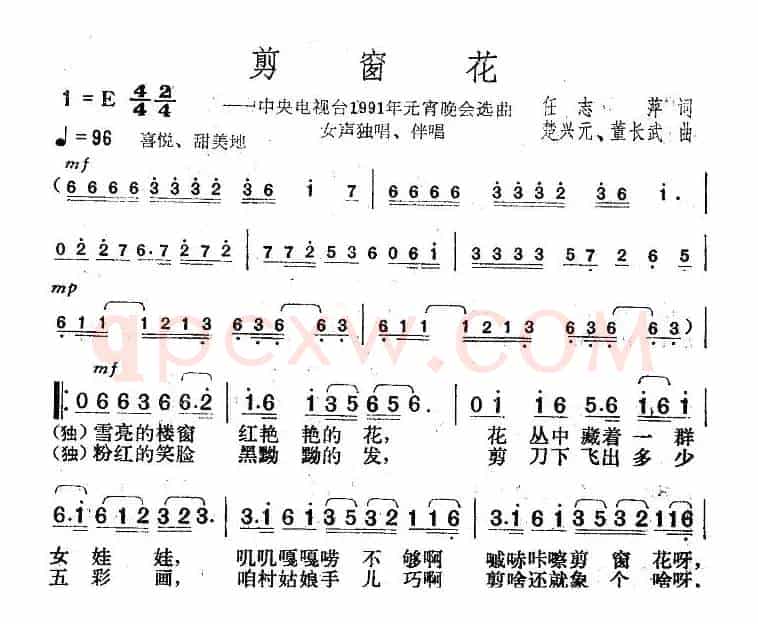 剪窗花
1=E 4/4 2/4
——中央电视台1991年元宵晚会选曲 任志萍 词
♩=96 喜悦、甜美地 女声独唱、伴唱 楚兴元、董长武 曲
mf
(6666 3332 36 i 7 | 6666 3332 36 i. |
0 2276. 7272 | 772536061 | 3333 57 2 65 |
mp
611 1213 636 63 | 611 1213 636 63) |
qpcxw.COM
mf
‖: 0663666.2 | i.6 i35656. | 0i i65.6i6i |
(独)雪亮的楼窗 红艳艳的花, 花丛中藏着一群
(独)粉红的笑脸 黑黝黝的发, 剪刀下飞出多少
6.i612323. | 3.i6i3532116 | 3.i6i3532116 |
女娃娃, 叽叽嘎嘎唠不够啊 喊哧咔嚓剪窗花呀,
五彩画, 咱村姑娘手儿巧啊 剪啥还就象个啥呀.